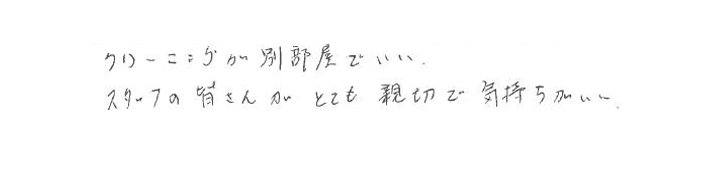 クリーニングが別部屋でいい.
スタッフの皆さんがとても親切で気持ちがいい.